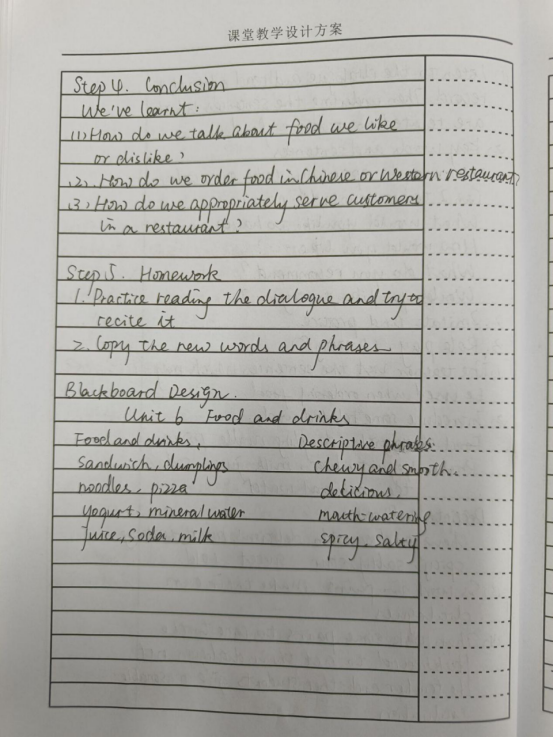 课堂教学设计方案
Step 4. Conclusion
We've learnt:
(1) How do we talk about food we like
or dislike?
(2). How do we order food in Chinese or Western restaurant?
(3) How do we appropriately serve customers
in a restaurant?
Step 5. Homework
1. Practice reading the dialogue and try to
recite it
2. Copy the new words and phrases
Blackboard Design.
Unit 6 Food and drinks
Food and drinks, Descriptive phrases.
Sandwich, dumplings chewy and smooth.
noodles, pizza delicious,
yogurt, mineral water mouth-watering
juice, soda, milk spicy, salty